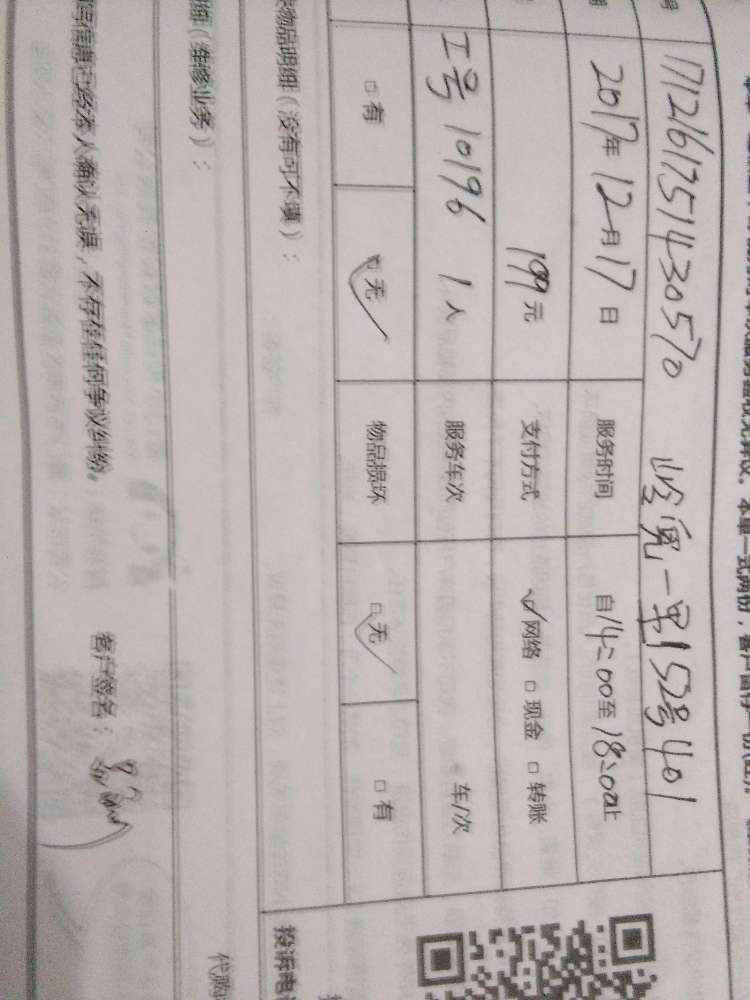 本单一式两份，客户留存一份
号 1712161751430570 岭兜一里152号401
期 2017年12月17日 服务时间 自14:00至18:00止
199元 支付方式 网络 □ 现金 □ 转账
工号10196 1人 服务车次 车/次
□ 有 无 物品损坏 □ 无 □ 有
物品明细（没有可不填）：
投诉电
细（维修业务）：
代购
写信息已经本人确认无误，不存在任何争议纠纷。 客户签名：